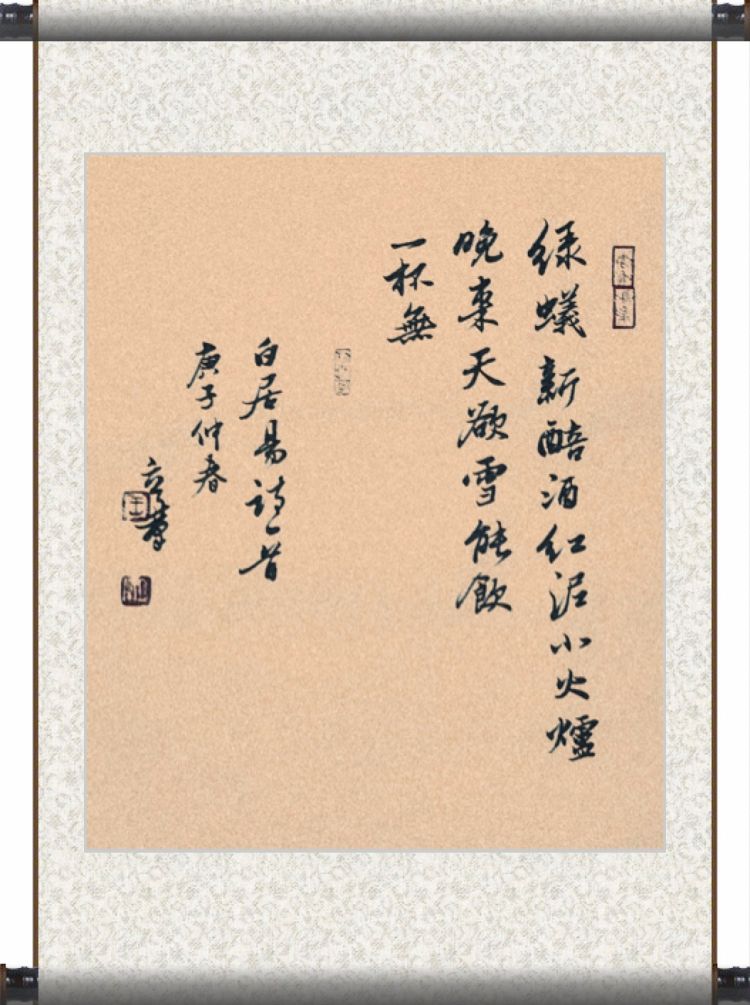 绿蟻新醅酒红泥小火爐
晚来天欲雪能飲
一杯無
白居易诗一首
庚子仲春